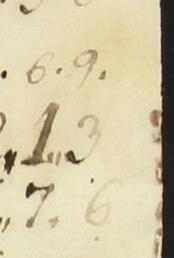 . 6. 9.
„ 1 „ 3
„ 7. 6